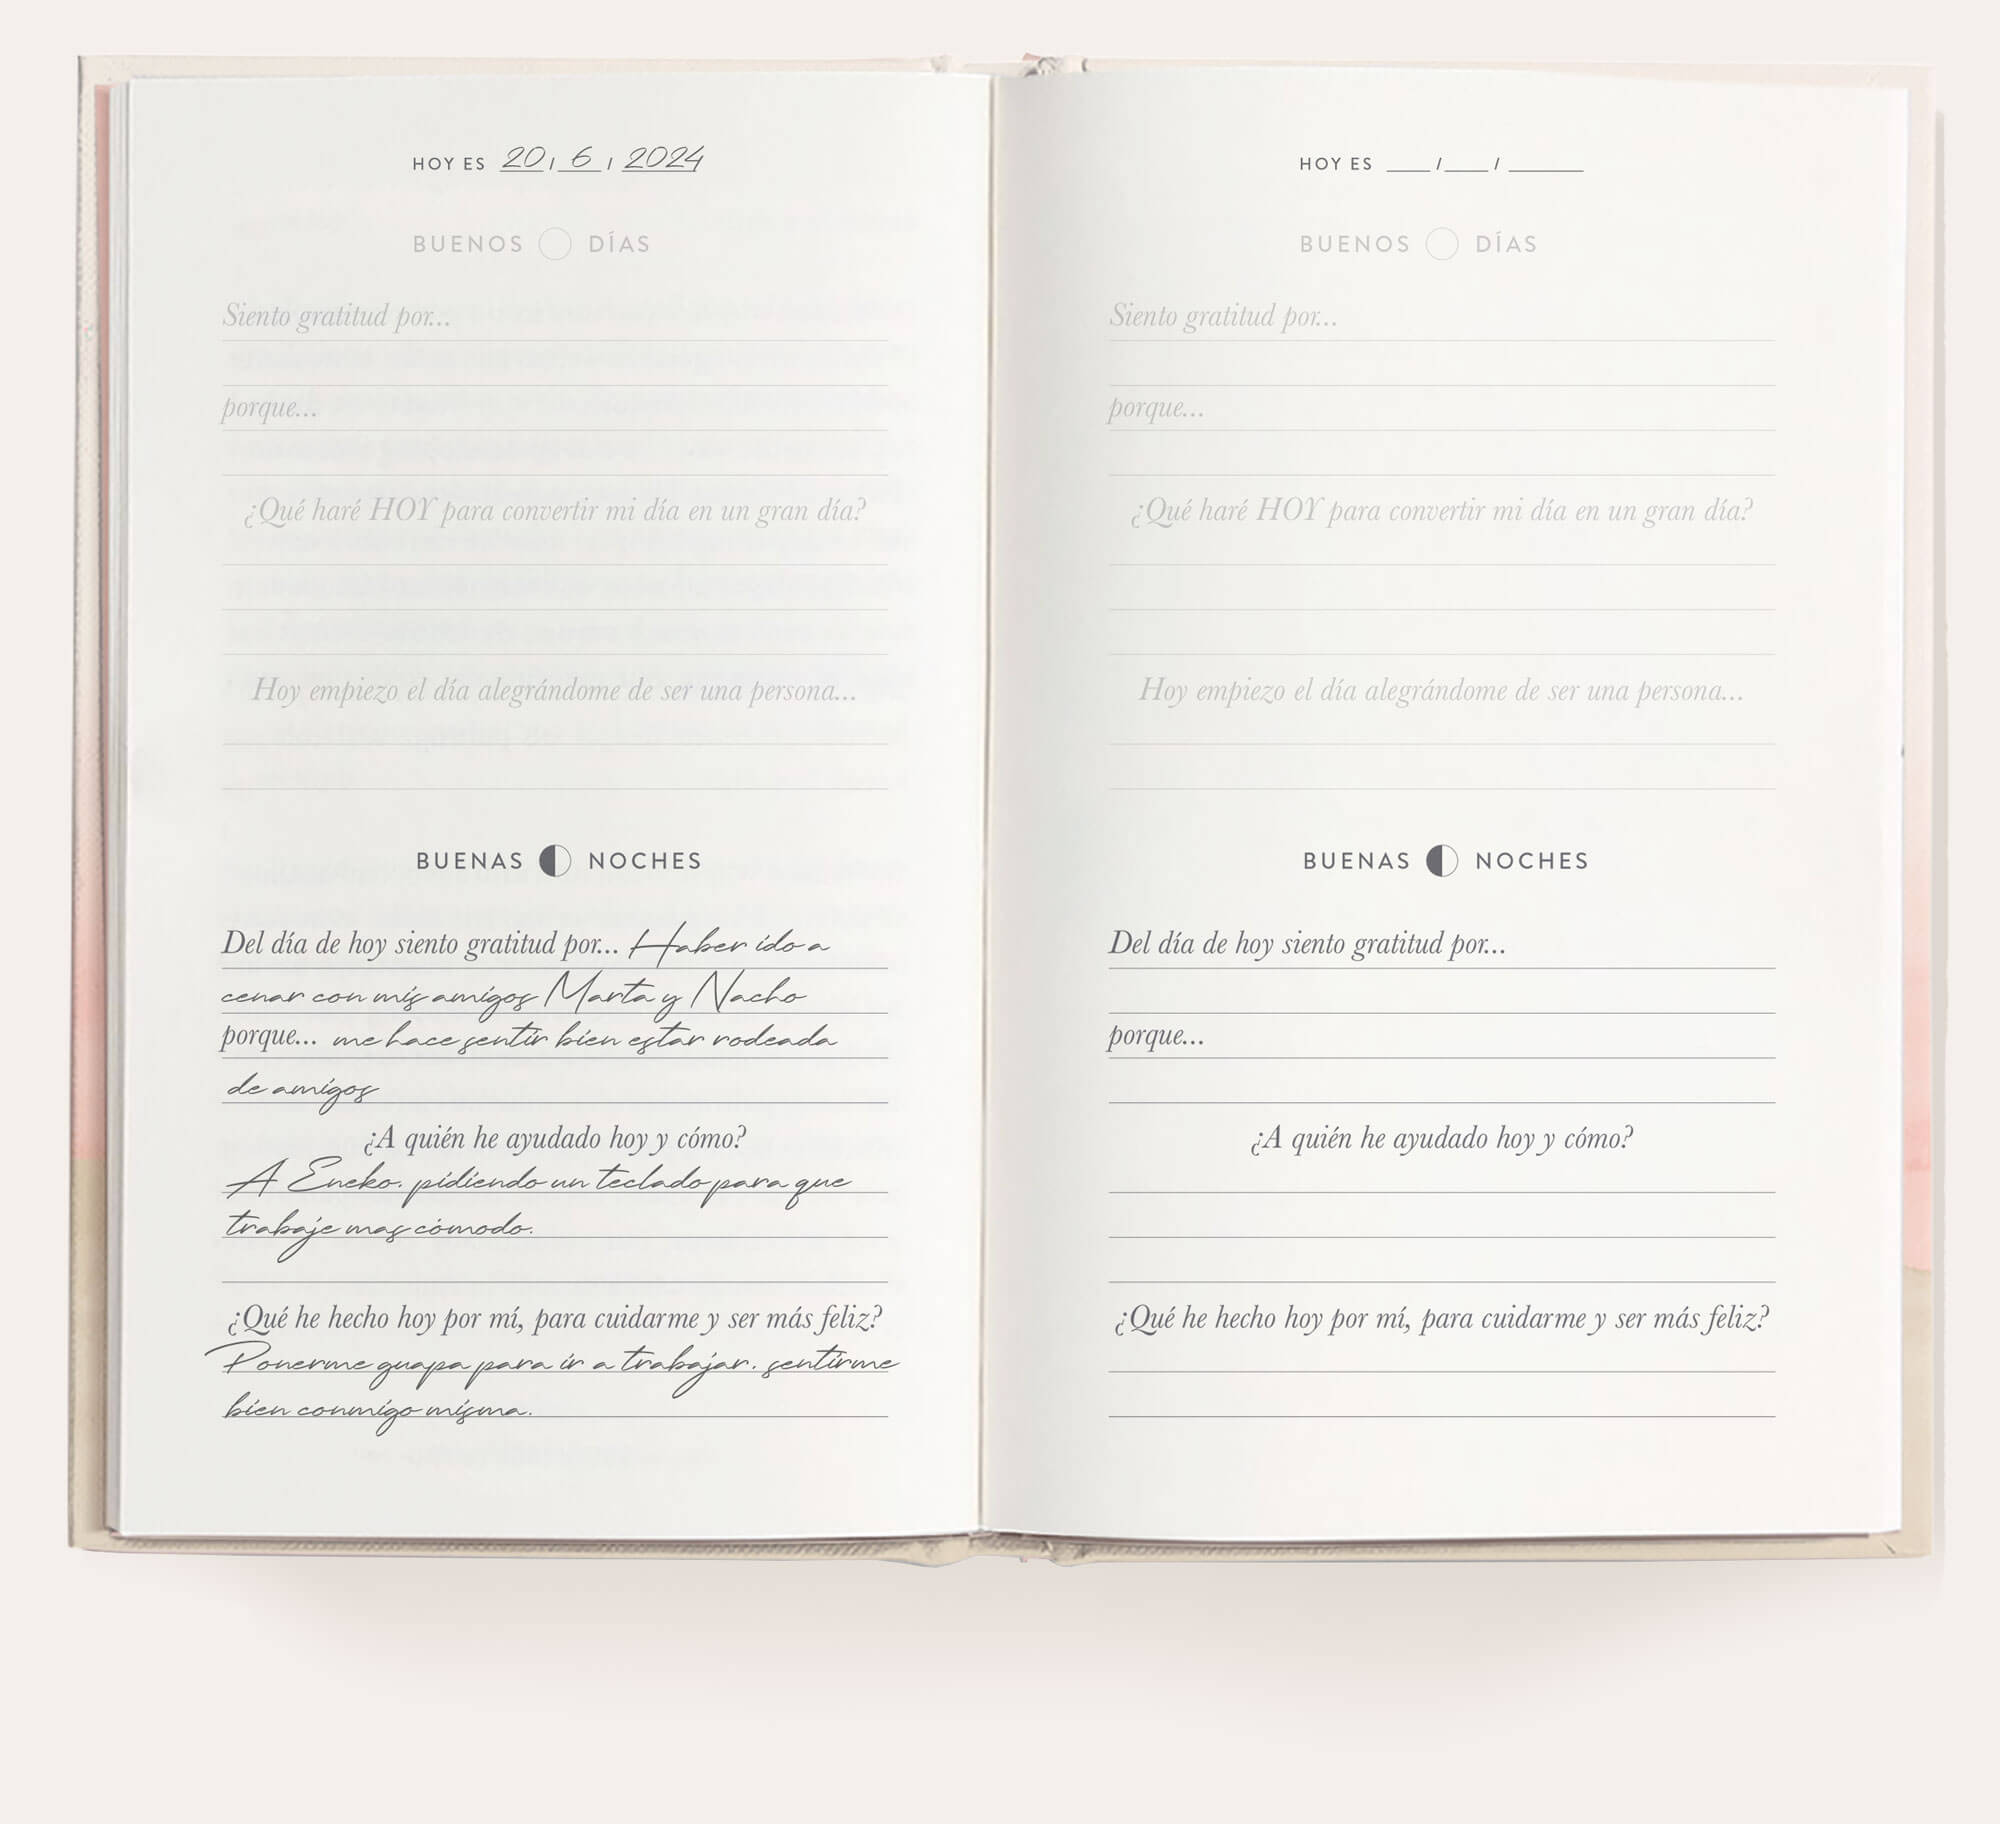 HOY ES 20 / 6 / 2024
BUENOS DÍAS
Siento gratitud por...
porque...
¿Qué haré HOY para convertir mi día en un gran día?
Hoy empiezo el día alegrándome de ser una persona...
BUENAS NOCHES
Del día de hoy siento gratitud por... Haber ido a
cenar con mis amigos Marta y Nacho
porque... me hace sentir bien estar rodeada
de amigos
¿A quién he ayudado hoy y cómo?
A Eneko. pidiendo un teclado para que
trabaje mas cómodo.
¿Qué he hecho hoy por mí, para cuidarme y ser más feliz?
Ponerme guapa para ir a trabajar. sentirme
bien conmigo misma.
HOY ES ___/___/____
BUENOS DÍAS
Siento gratitud por...
porque...
¿Qué haré HOY para convertir mi día en un gran día?
Hoy empiezo el día alegrándome de ser una persona...
BUENAS NOCHES
Del día de hoy siento gratitud por...
porque...
¿A quién he ayudado hoy y cómo?
¿Qué he hecho hoy por mí, para cuidarme y ser más feliz?